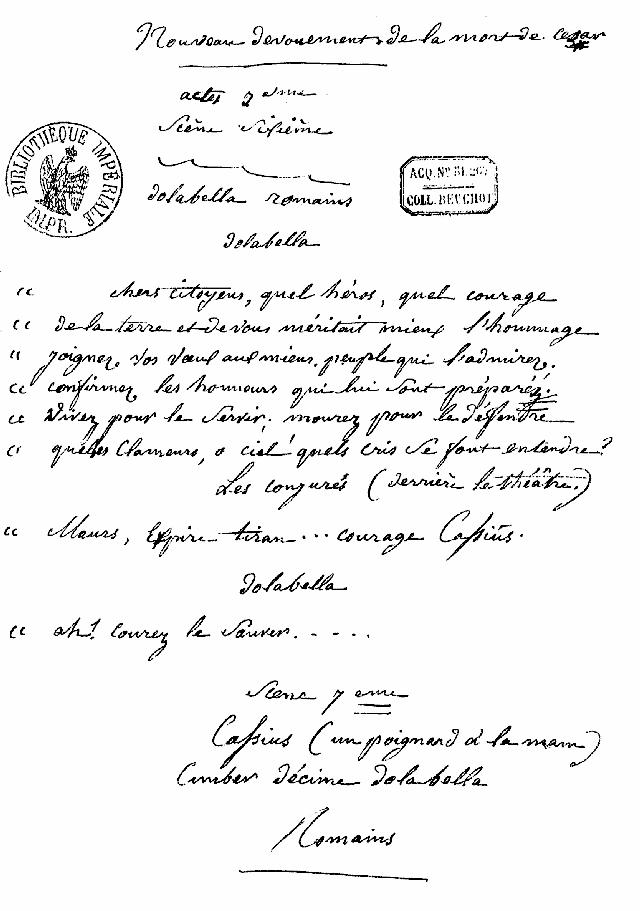 Nouveau devouement de la mort de Cesar
actes 3 eme
Scène Sixième
BIBLIOTHÈQUE IMPÉRIALE
IMPR.
ACQ. Nº
COLL. BEUCHOT
dolabella romains
dolabella
" chers citoyens, quel héros, quel courage
" de la terre et de vous méritait mieux l'hommage
" joignez vos vœux aux miens, peuple qui l'admirez.
" confirmez les honneurs qui lui sont préparéz.
" Vivez pour le servir, mourez pour le défendre
" quelles clameurs, o ciel! quels cris se font entendre?
Les conjurés (derrière le théâtre.)
" Meurs, Expire tiran... courage Cassius.
dolabella
" ah! courez le sauver.....
Scene 7 eme
Cassius (un poignard à la main)
Cimber décime dolabella
Romains